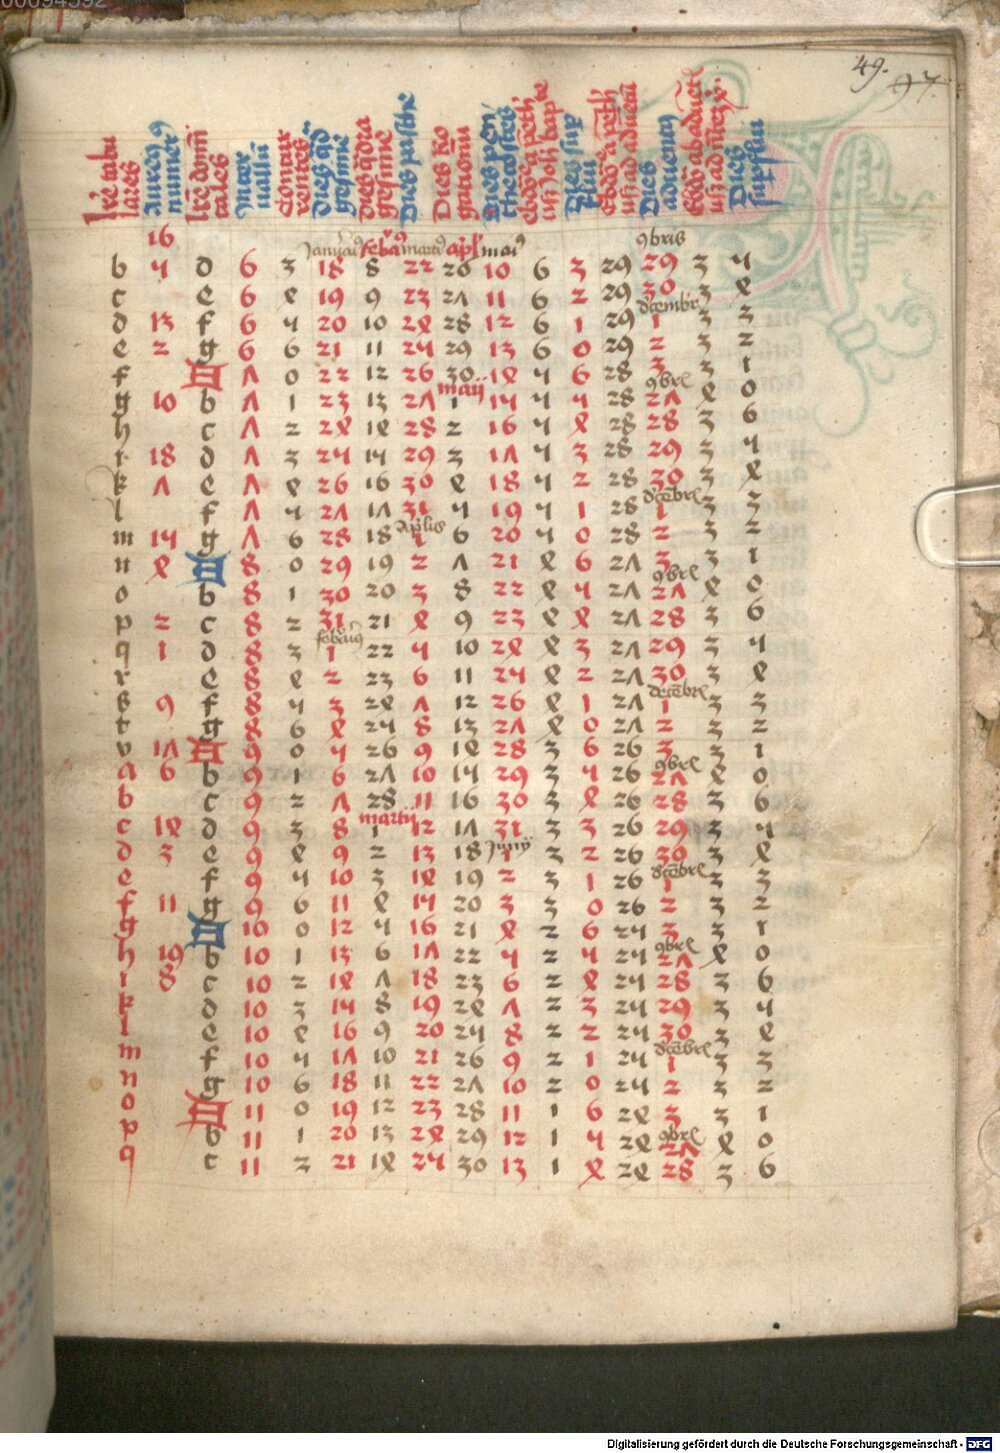 49. 97.
lr̃e tabulares Aureꝰ numerꝰ lr̃e dominicales Intervallũ Concurrentes Dies pasche
16 Januariꝰ febrꝰ martiꝰ apl̃ maiꝰ 9bris
b 5 d 6 3 18 8 22 26 10 6 3 29 29 3 5
c e 6 4 19 9 23 27 11 6 2 29 30 3 4
decembr̃
d 13 f 6 5 20 10 24 28 12 6 1 29 1 3 3
e 2 g 6 6 21 11 25 29 13 6 0 29 2 3 2
f A 7 0 22 12 26 30 14 5 6 28 3 3 1
maij 9brẽ
g 10 b 7 1 23 13 27 1 15 5 5 28 27 4 0
h c 7 2 24 14 28 2 16 5 4 28 28 3 6
i 18 d 7 3 25 15 29 3 17 5 3 28 29 3 5
k 7 e 7 4 26 16 30 4 18 5 2 28 30 3 4
decẽbrẽ
l f 7 5 27 17 31 5 19 5 1 28 1 3 3
aprilis
m 15 g 7 6 28 18 1 6 20 5 0 28 2 3 2
n 4 A 8 0 29 19 2 7 21 4 6 27 3 3 1
9brẽ
o b 8 1 30 20 3 8 22 4 5 27 27 4 0
p 2 c 8 2 31 21 4 9 23 4 4 27 28 3 6
februariꝰ
q 1 d 8 3 1 22 5 10 24 4 3 27 29 3 5
r e 8 4 2 23 6 11 25 4 2 27 30 3 4
decẽbrẽ
s 9 f 8 5 3 24 7 12 26 4 1 27 1 3 3
t g 8 6 4 25 8 13 27 4 0 27 2 3 2
v 17 A 9 0 5 26 9 14 28 3 6 26 3 3 1
9brẽ
a 6 b 9 1 6 27 10 15 29 3 5 26 27 4 0
b c 9 2 7 28 11 16 30 3 4 26 28 3 6
martij
c 14 d 9 3 8 1 12 17 31 3 3 26 29 3 5
Junij
d 3 e 9 4 9 2 13 18 1 3 2 26 30 3 4
decẽbrẽ
e f 9 5 10 3 14 19 2 3 1 26 1 3 3
f 11 g 9 6 11 4 15 20 3 3 0 26 2 3 2
g A 10 0 12 5 16 21 4 2 6 25 3 3 1
9brẽ
h 19 b 10 1 13 6 17 22 5 2 5 25 27 4 0
i 8 c 10 2 14 7 18 23 6 2 4 25 28 3 6
k d 10 3 15 8 19 24 7 2 3 25 29 3 5
l e 10 4 16 9 20 25 8 2 2 25 30 3 4
decẽbrẽ
m f 10 5 17 10 21 26 9 2 1 25 1 3 3
n g 10 6 18 11 22 27 10 2 0 25 2 3 2
o A 11 0 19 12 23 28 11 1 6 24 3 3 1
9brẽ
p b 11 1 20 13 24 29 12 1 5 24 27 4 0
q c 11 2 21 14 25 30 13 1 4 24 28 3 6
Digitalisierung gefördert durch die Deutsche Forschungsgemeinschaft - DFG